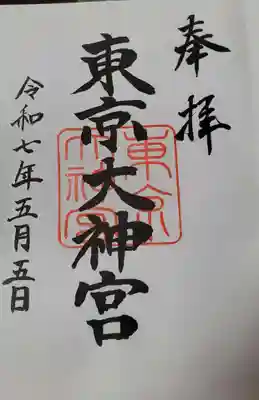 奉拝
東京大神宮
東京
大神宮
令和七年五月五日